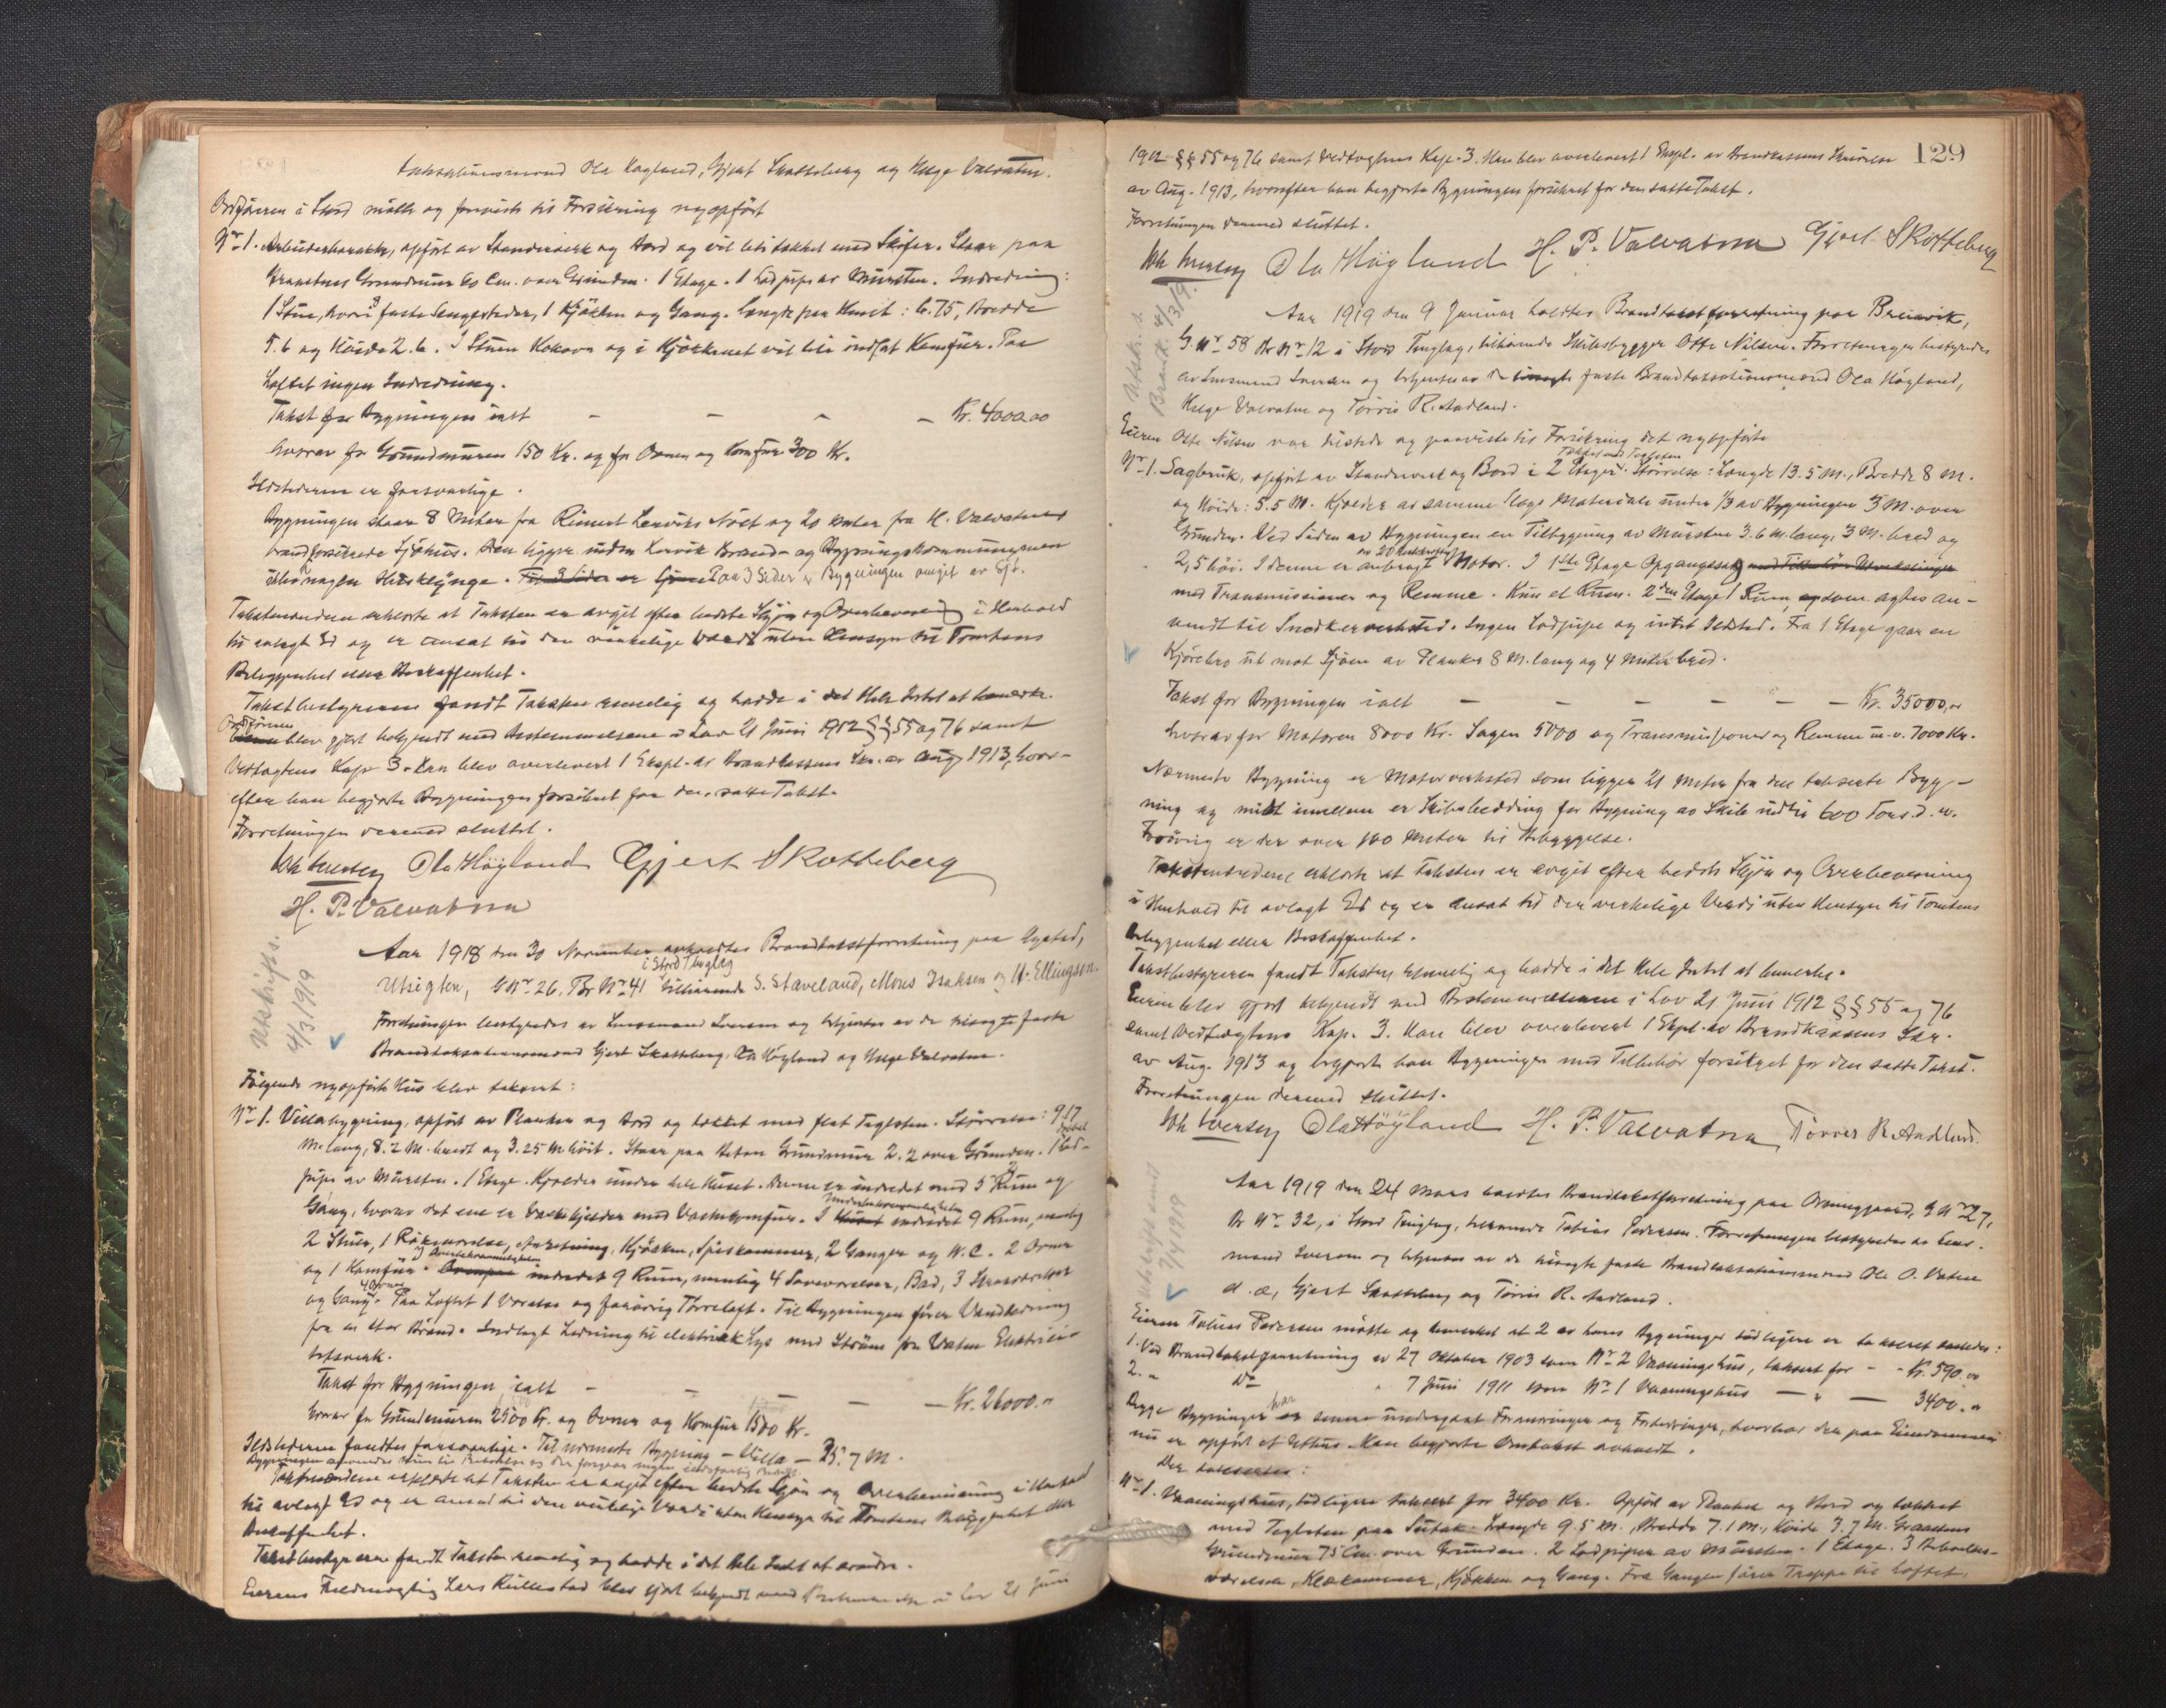 Taksationsmænd Ola Høgland, Gjert Skotteberg og Helge Valvatne.
Ordføreren i Stord møtte og paaviste til Forsikring nyopført
Nr 1. Arbeiderbarakke, opført av Standerverk og Bord og vil bli takket med Skifer. Staar paa
Graastens Grundmur 60 Cm. over Grunden. 1 Etage. 1 Lodpipe av Mursten. Indredning:
1 Stue, hvori 8 faste Sengesteder, 1 Kjøkken og Gang. Længde paa Huset: 6.75, Bredde
5.6 og Høide 2.6. I Stuen Kokovn og i Kjøkkenet vil bli indsat Komfur. Paa
Loftet ingen Indredning.
Takst for Bygningen ialt — — — — Kr. 4000.00
hvorav for Grundmuren 150 Kr. og for Ovnen og Komfur 300 Kr.
Ildstederne er forsvarlige.
Bygningen staar 8 Meter fra Rimert Lerviks Nøst og 20 Meter fra H. Valvatnes
brandforsikrede Sjøhus. Den ligger inden Lervik Brand- og Bygningskommune men
uten nogen Husklynge. Til 3 Sider er Sjøen Paa 3 Sider er Bygningen omgit av Sjø.
Takstmændene erklærte at Taksten er avgit efter bedste Skjøn og Overbevisning i Henhold
til avlagt Ed og er ansat til den virkelige Værdi uten Hensyn til Tomtens
Beliggenhet eller Beskaffenhet.
Takstbestyreren fandt Taksten rimelig og hadde i det Hele Intet at bemerke.
Ordføreren
Eieren blev gjort bekjendt med Bestemmelserne i Lov 21 Juni 1912 §§ 55 og 76 samt
Vedtægtens Kap. 3. Han blev overlevert 1 Expl. av Brandkassens Skr. av Aug. 1913, hvor-
efter han begjærte Bygningen forsikret for den satte Takst.
Forretningen dermed sluttet.
Joh Iversen Ola Høyland Gjert Skotteberg
H. P. Valvatna
Utskrift s.
4/3 1919
Aar 1918 den 30 November avholdtes Brandtakstforretning paa Agatad,
i Stord Tinglag
Utsigten, G Nr. 26, Br Nr 41 tilhørende S. Staveland, Mons Isaksen og H. Ellingsen.
Forretningen bestyredes av Lensmand Iversen og betjentes av de tilsagte faste
Brandtaksationsmænd Gjert Skotteberg, Ola Høyland og Helge Valvatne.
Følgende nyopførte Hus blev taksert:
Nr 1. Villabygning, opført av Planker og Bord og tækket med flat Taglsten. Størrelse: 9.17
M. lang, 8.2 M. bredt og 3.25 M høit. Staar paa Beton Grundmur 2.2 over Grunden. 1 Lod-
pipe av Mursten. 1 Etage. Kjælder under hele Huset. Denne er indredet med 5 Rum og
Gang, hvorav det ene er Vaskekjælder med Vaskekomfur. I Huset indredet 9 Rum, nemlig
2 Stuer, 1 Røkværelse, Anretning, Kjøkken, Spiskammer, 2 Ganger og W.C. 2 Ovner
og 1 Komfur. indredet 9 Rum, nemlig 4 Soveværelser, Bad, 3
4 Ovner
og Gang. Paa Loftet 1 Værelse og forøvrig Tørreloft. Til Bygningen fører Vandledning
fra en stor Brønd. Indlagt Ledning til elektrisk Lys med Strøm fra Vatne Elektrici-
tetsverk.
Takst for Bygningen ialt — — — — Kr. 26000.00
hvorav for Grundmuren 2500 Kr. og Ovner og Komfur 1500 Kr.
Ildstederne fandtes forsvarlige. Til nærmeste Bygning – Villa – 25.7 M.
Bygningen anvendes kun til Beboelse og der foregaar ingen ildsfarlig Bedrift.
Takstmændene erklærte at Taksten er avgit efter bedste Skjøn og Overbevisning i Henhold
til avlagt Ed og er ansat til den virkelige Værdi uten Hensyn til Tomtens Beliggenhet eller
Beskaffenhet.
Takstbestyreren fandt Taksten rimelig og hadde i det Hele Intet at ændre.
Eierens Fuldmægtig Lars Rullestad blev gjort bekjendt med Bestemmelserne i Lov 21 Juni
129
1912 §§ 55 og 76 samt Vedtægtens Kap. 3. Han blev overlevert 1 Expl. av Brandkassens Skrivelse
av Aug. 1913, hvorefter han begjærte Bygningen forsikret for den satte Takst.
Forretningen dermed sluttet.
Joh Iversen Ola Høyland H. P. Valvatna Gjert Skotteberg
Utskr. s.
Brandt. 4/3 19.
Aar 1919 den 9 Januar holdtes Brandtakstforretning paa Breivik,
G Nr 58 Br Nr 12 i Stord Tinglag, tilhørende Skibsbygger Otto Nilsen. Forretningen bestyredes
av Lensmand Iversen og betjentes av de tilsagte faste Brandtaksationsmænd Ola Høyland,
Helge Valvatne og Tørris R. Aadland.
Eieren Otto Nilsen var tilstede og paaviste til Forsikring det nyopførte
Tækket med Taglsten
Nr 1. Sagbruk, opført av Standerverk og Bord i 2 Etager. Størrelse: Længde 13.5 M., Bredde 8 M.
og Høide: 5.5 M. Kjælder av samme Slags Materiale under 1/3 av Bygningen 3 M. over
Grunden. Ved Siden av Bygningen en Tilbygning av Mursten 3.6 M. lang, 3 M. bred og
en 20 Hestekrefters
2,5 høi. I denne er anbragt Motor. I 1ste Etage Opgangssag
med Transmissioner og Remme. Kun et Rum. 2den Etage 1 Rum, som agtes an-
vendt til Snedkerverksted. Ingen Lodpipe og intet Ildsted. Fra 1 Etage gaar en
Kjørebro ut mot Sjøen av Planker 8 M. lang og 4 Meter bred.
Takst for Bygningen ialt — — — — — — Kr. 35000,00
hvorav for Motoren 8000 Kr. Sagen 5000 og Transmisjoner og Remme m.v. 7000 Kr.
Nærmeste Bygning er Motorverksted som ligger 21 Meter fra den takserte Byg-
ning og midt imellem er Skibsbedding for Bygning av Skib indtil 600 Tons. d. w.
Forøvrig er der over 100 Meter til Bebyggelse.
Takstmændene erklærte at Taksten er avgit efter bedste Skjøn og Overbevisning
i Henhold til avlagt Ed og er ansat til den virkelige Verdi uten Hensyn til Tomtens
Beliggenhet eller Beskaffenhet.
Takstbestyreren fandt Taksten rimelig og hadde i det Hele Intet at bemerke.
Eieren blev gjort bekjendt med Bestemmelserne i Lov 21 Juni 1912 §§ 55 og 76
samt Vedtægtens Kap. 3. Han blev overlevert 1 Expl. av Brandkassens Skr.
av Aug. 1913 og begjærte han Bygningen med Tilbehør forsikret for den satte Takst.
Forretningen dermed sluttet.
Joh Iversen Ola Høyland H. P. Valvatna Tørres R. Aadland.
Utskrift sendt
7/4 1919
Aar 1919 den 24 Mars holdtes Brandtakstforretning paa Orninggaard, G Nr 27,
Br Nr 32, i Stord Tinglag, tilhørende Tobias Pedersen. Forretningen bestyredes av Lens-
mand Iversen og betjentes av de tilsagte faste Brandtaksationsmænd Ole O. Vatne
d. æ., Gjert Skotteberg og Tørris R. Aadland.
Eieren Tobias Pedersen møtte og bemerket at 2 av hans Bygninger tidligere er takseret saaledes:
1. Ved Brandtakstforretning av 27 Oktober 1903 som Nr 2 Vaaningshus, taksert for - - Kr. 590.00
2. " Do " 7 Juni 1911 som Nr 1 Vaaningshus — " — 3400. "
Begge Bygninger har senere undergaat Forandringer og Forbedringer, hvorhos der paa Eiendommen
nu er opført et Uthus. Han begjærte Omtakst avholdt.
Der takseredes:
Nr 1. Vaaningshus, tidligere taksert for 3400 Kr. Opført av Planker og Bord og tækket
med Taglsten paa Sutak. Længde 9.5 M., Bredde 7.1 M., Høide 3.7 M. Graastens
Grundmur 75 Cm. over Grunden. 2 Lodpiper av Mursten. 1 Etage. 3 Beboelses-
værelser, Klækammer, Kjøkken og Gang. Fra Gangen fører Trappe til Loftet,